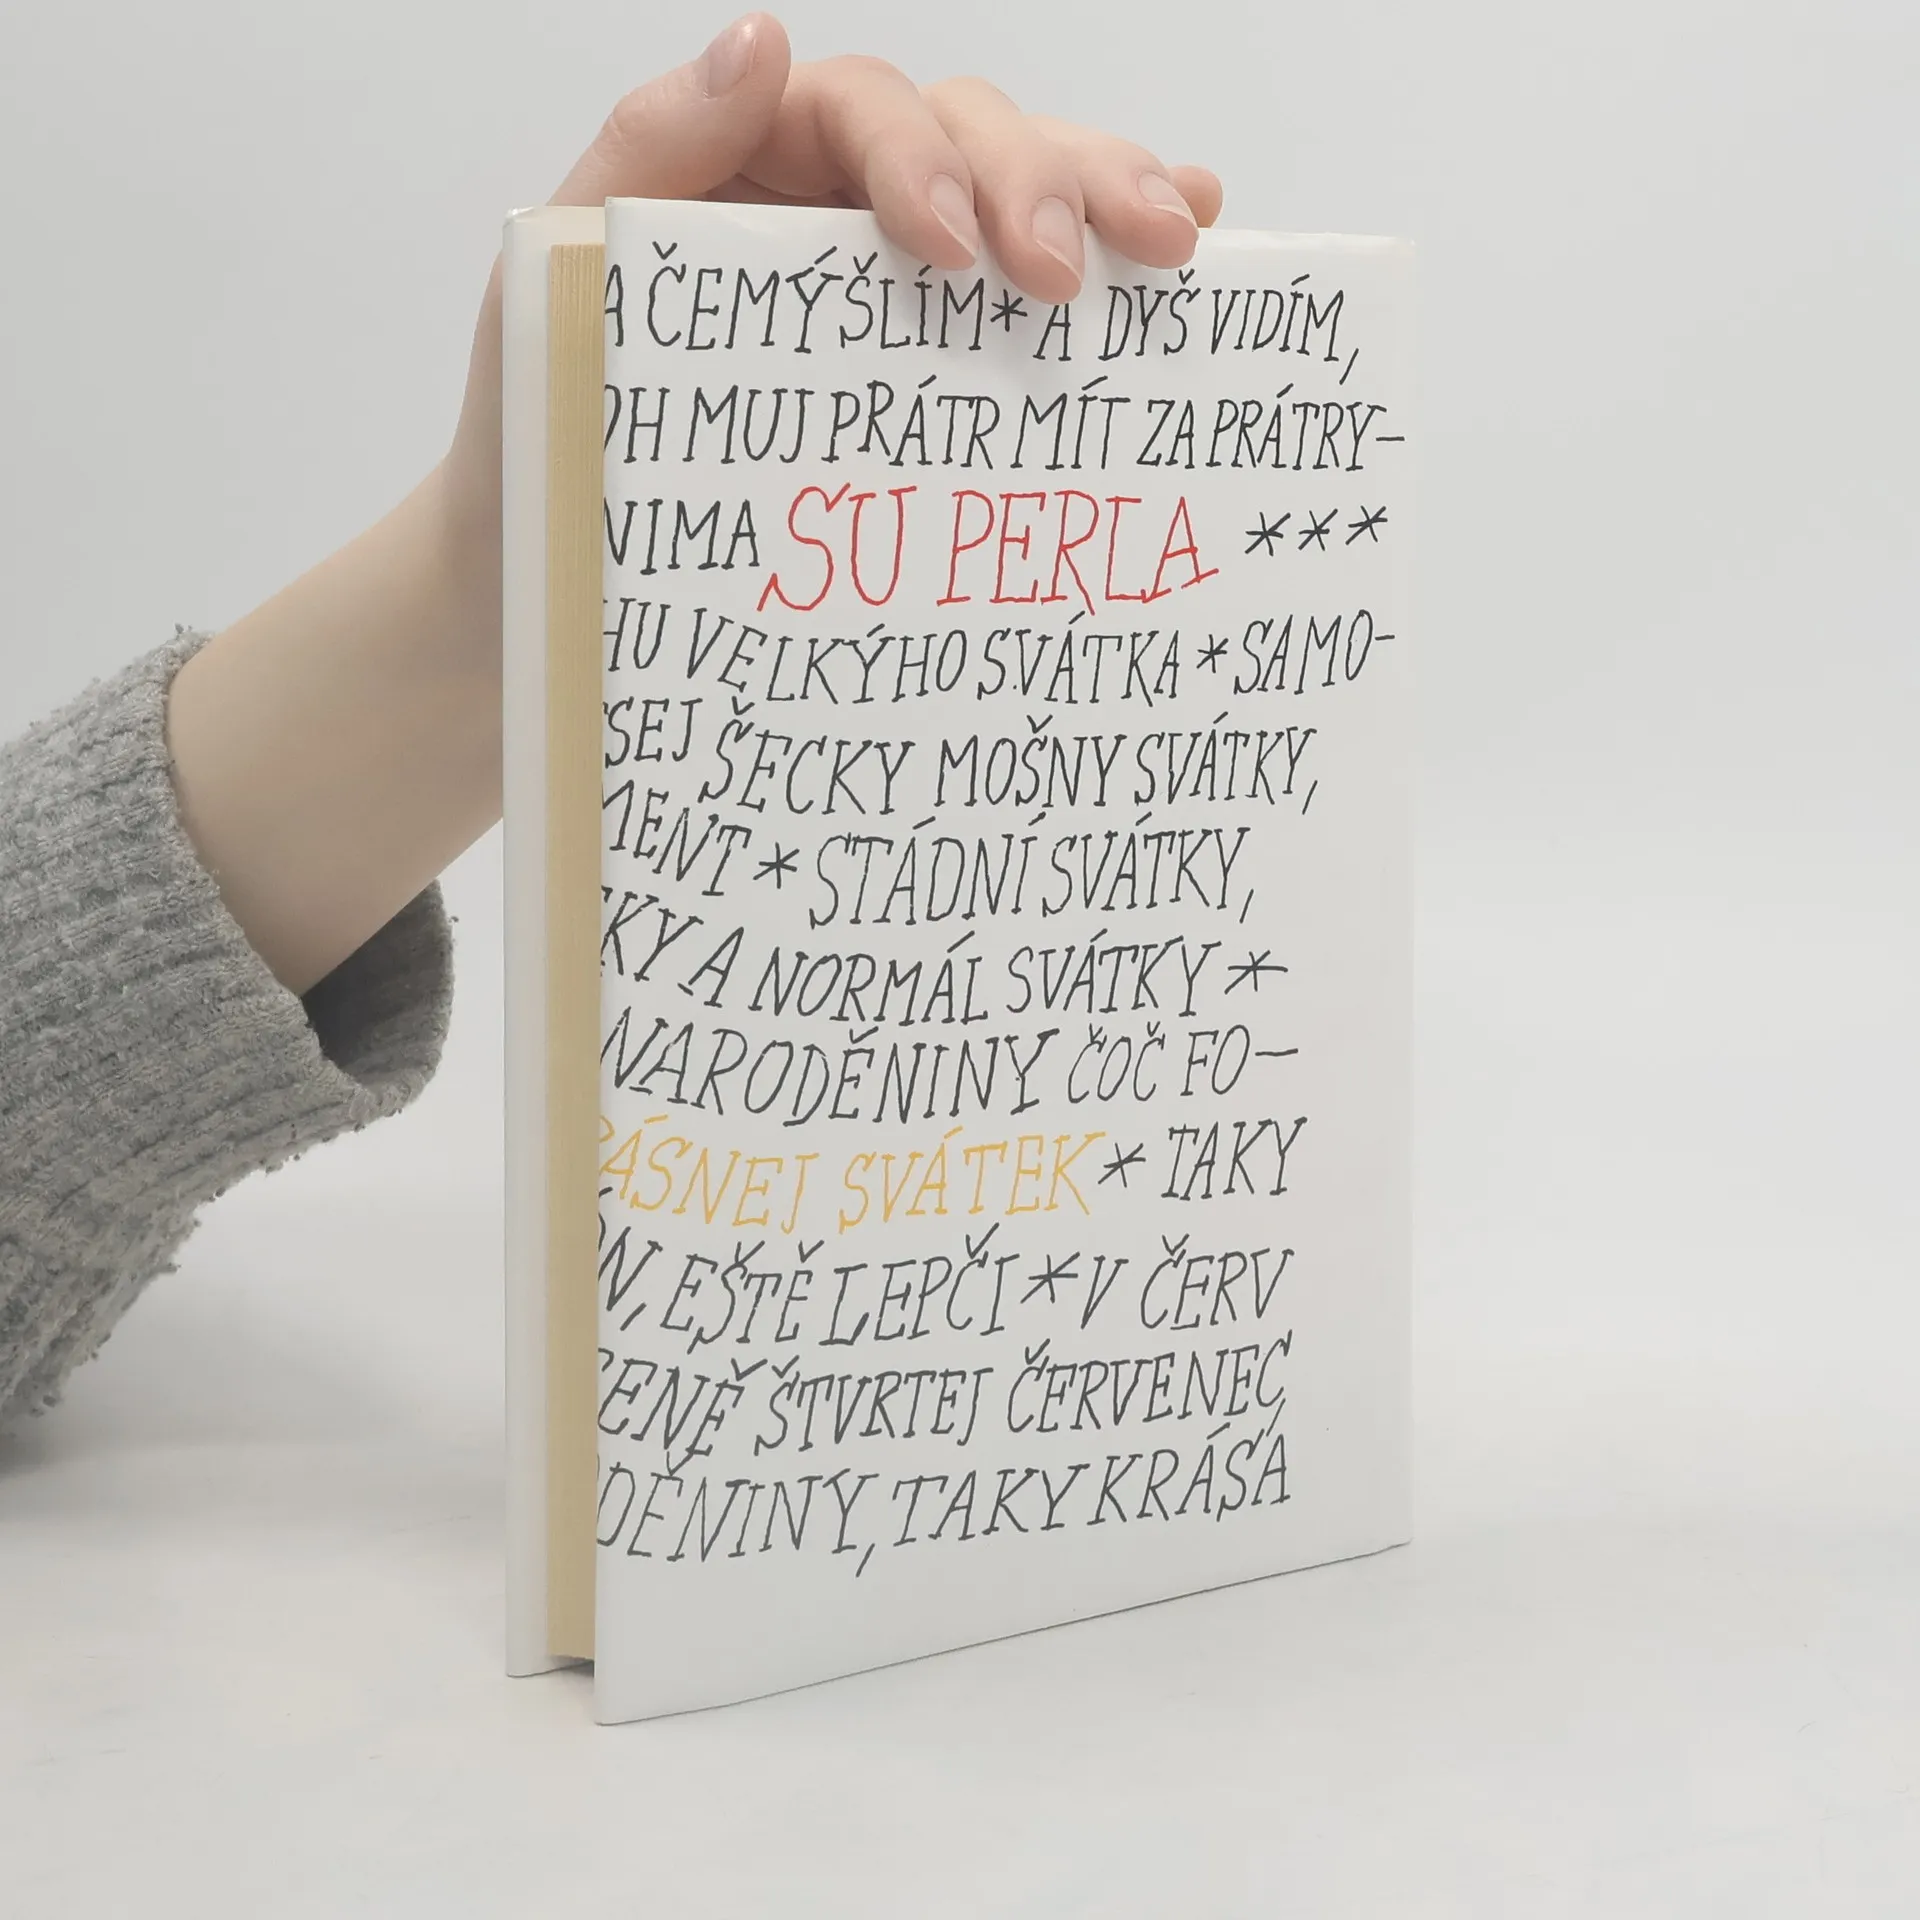 A ČEMÝŠLÍM * A DYŠ VIDÍM,
OH MUJ PRÁTR MÍT ZA PRÁTRY-
NIMA SU PERLA ***
HU VELKÝHO SVÁTKA * SAMO-
SEJ ŠECKY MOŠNY SVÁTKY,
MENT * STÁDNÍ SVÁTKY,
KY A NORMÁL SVÁTKY *
NARODĚNINY ČOČ FO-
ÁSNEJ SVÁTEK * TAKY
N, EŠTĚ LEPČI * V ČERV
ENĚ ŠTVRTEJ ČERVENEC
DĚNINY, TAKY KRÁSÁ